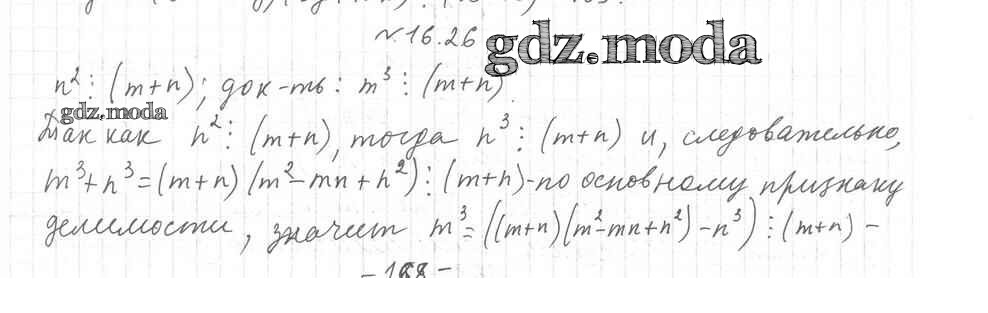 №16.26
gdz.moda
n² ⋮ (m+n); док-ть: m³ ⋮ (m+n).
gdz.moda
Так как n² ⋮ (m+n), тогда n³ ⋮ (m+n) и, следовательно,
m³+n³=(m+n)(m²-mn+n²) ⋮ (m+n)-по основному признаку
делимости, значит m³=((m+n)(m²-mn+n²)-n³) ⋮ (m+n) -